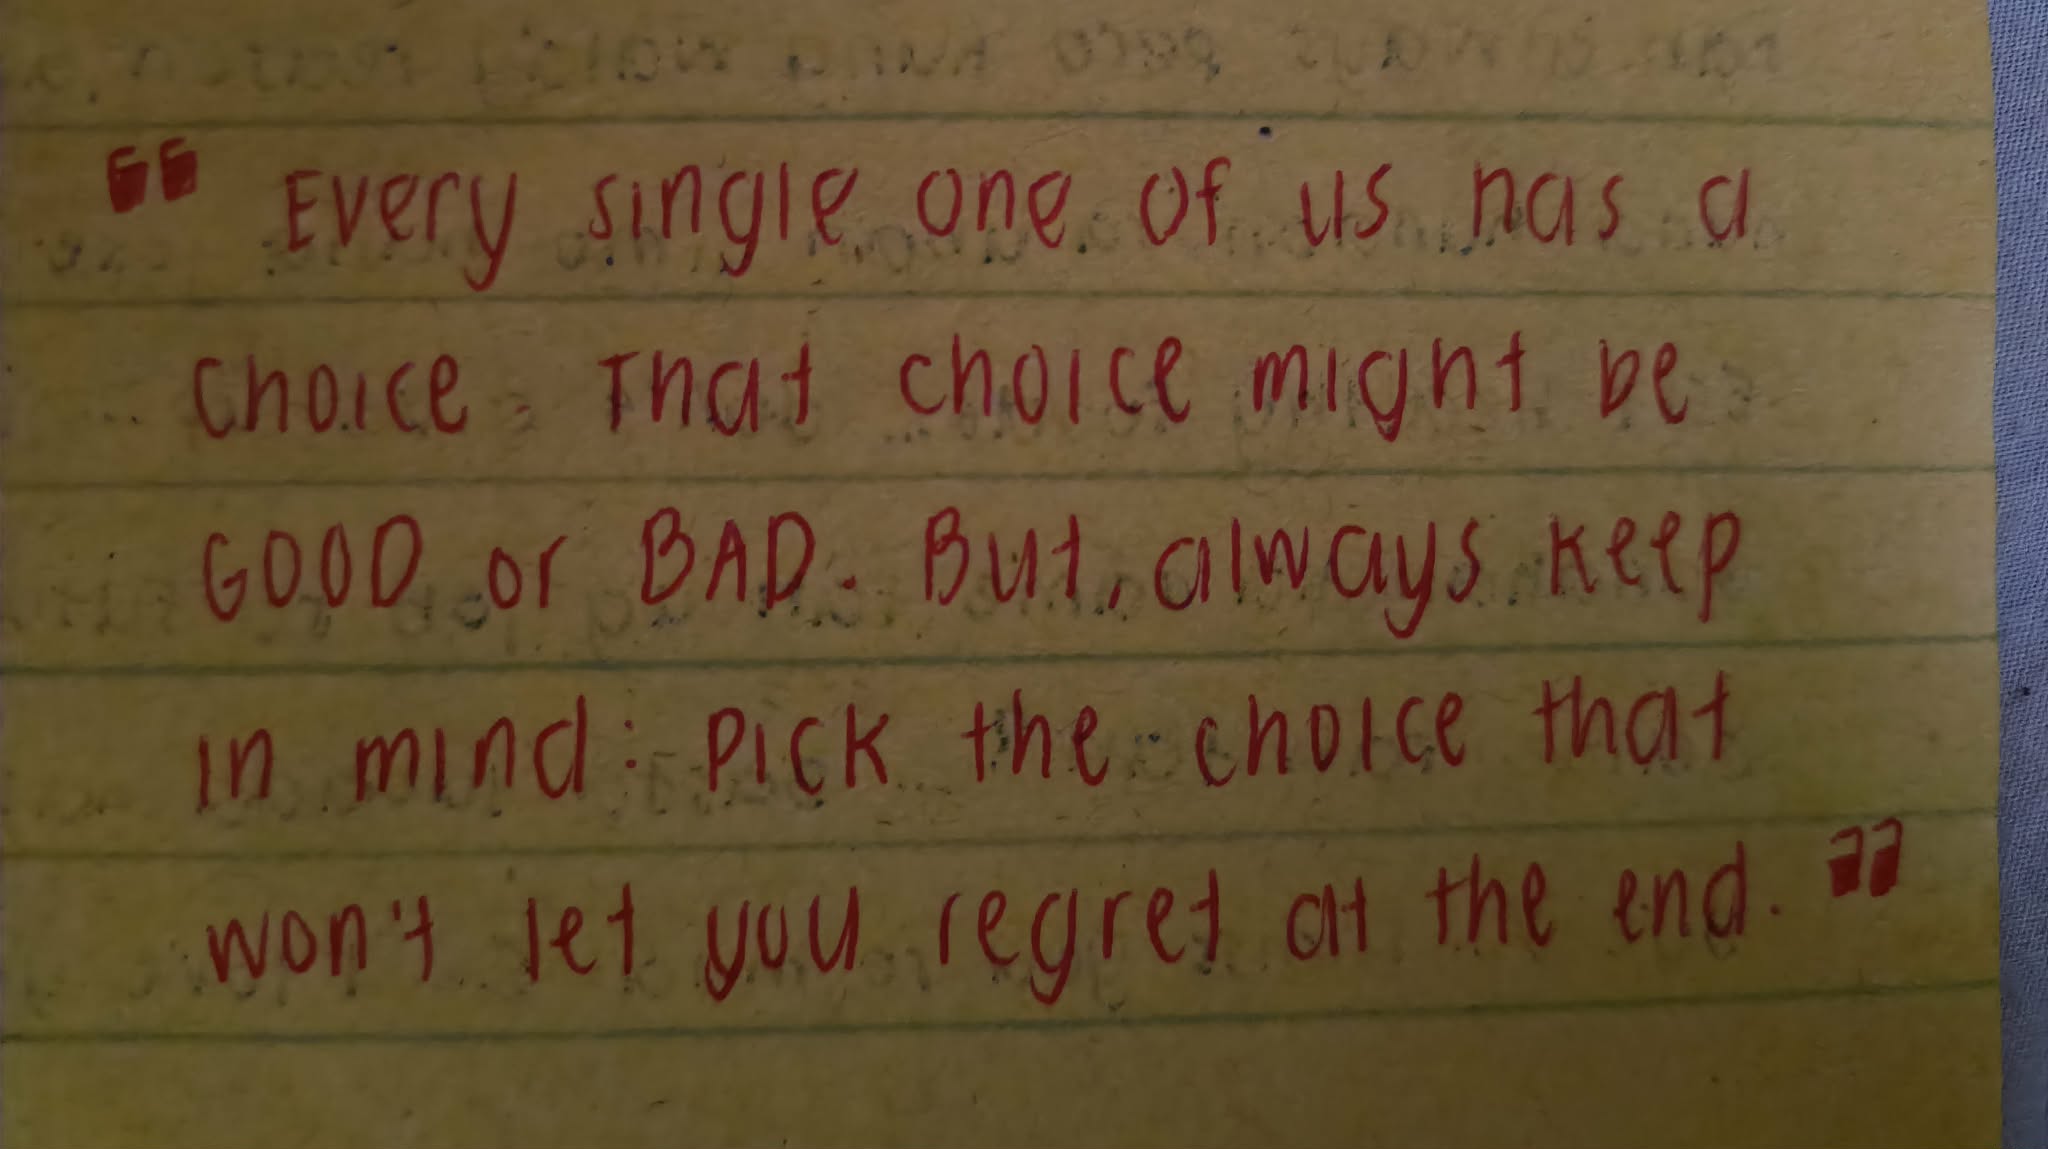 “ Every single one of us has a
choice. That choice might be
GOOD or BAD. But, always keep
in mind: Pick the choice that
won't let you regret at the end. ”